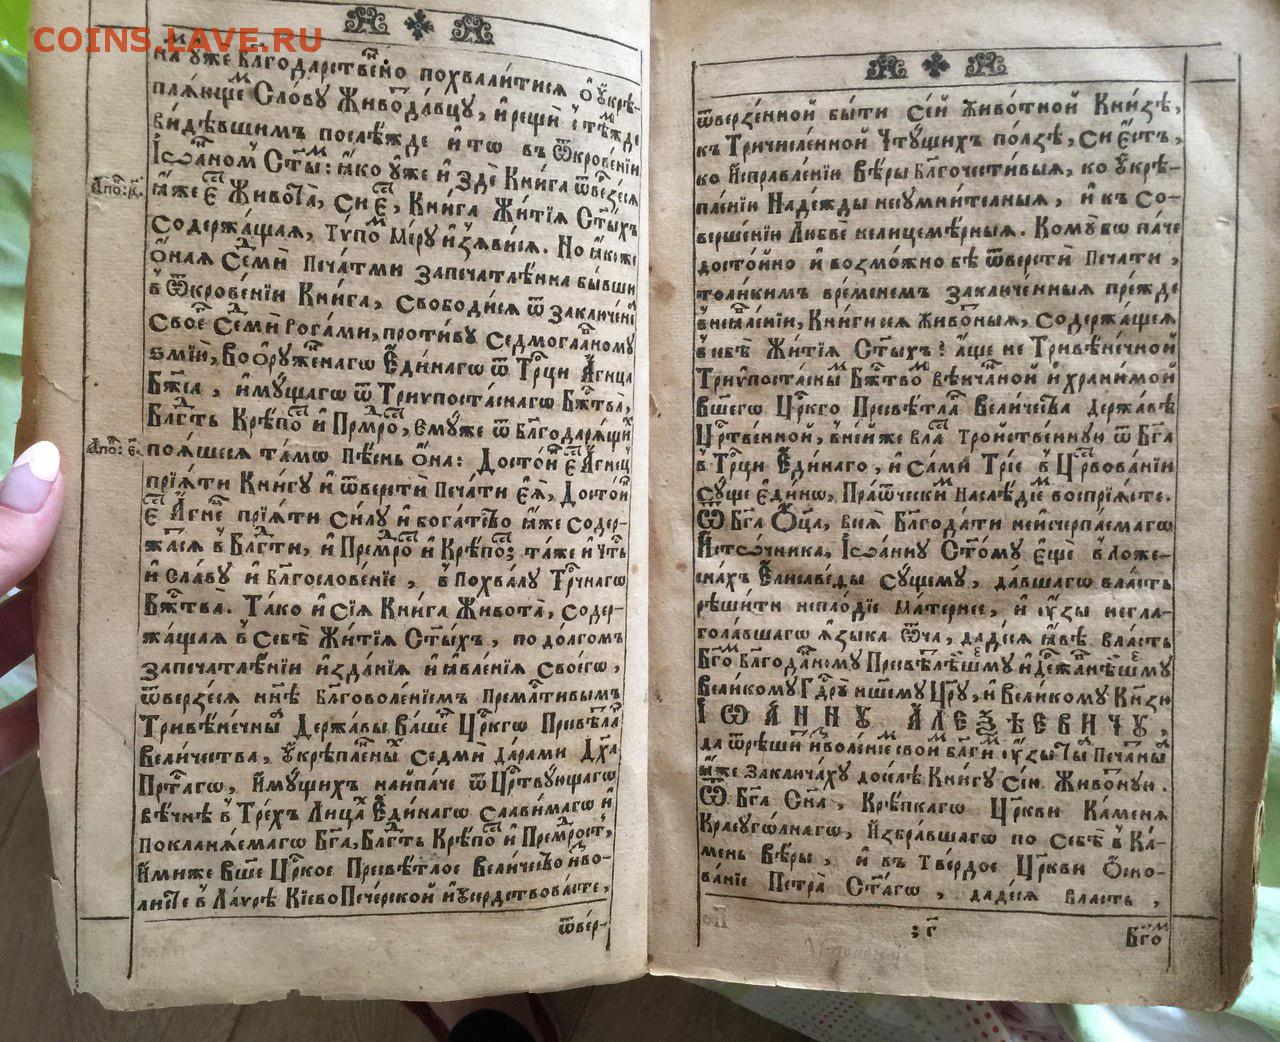 COINS.LAVE.RU
на уже Бл҃годарстве́но похвали́тися ѡ҆ Оу҆крѣ-
пля́ющем Сло́ву Живода́вцу, и҆ рещѝ
ви́дѣвшимъ послѣ́жде и҆ то̀ въ Ѿкрове́нїи
І҆ѡа́ном Ст҃ы: ꙗ҆́ко уже и҆ здѐ Кни́га ѿве́рзеся
Апо: к҃.
ꙗ҆́же є҆́ Живота̀, си є҆́, Кни́га Жи́тїѧ Ст҃ы́хъ
содержа́щая, Тѵпом Мѣру и҆з̾ꙗви́ся. Но ꙗ҆́коже
ѻ҆́ная Седмѝ Печа́тми запечатлѣ́нна бы́вши
в̾ Ѿкрове́нїи Кни́га, свободи́ся ѿ заключе́нїѧ
свое Седмѝ Рога́ми, проти́ву седмогла́вному
ѕмі́ю, Воѻруже́нагѡ Є҆ди́нагѡ ѿ Трⷪ҇ци А҆́гнца
Бж҃їа, и҆му́щагѡ ѿ Трїѵпоста́снагѡ Бж҃тва̀,
Бл҃гⷣть Крѣ́по и҆ Прмⷣро, є҆му́же ѿ бл҃годаря́щих
Апо: є҃.
поя́шеся та́мѡ пѣ́снь ѻ҆́на: Досто́и є҆́ А҆́гнецъ
прїѧ́ти Кни́гу и҆ ѿве́рсти Печа́ти є҆ѧ̀, Досто́и
є҆́ А҆́гне прїѧ́ти си́лу и҆ бога́тство ꙗ҆́же содер-
жа́ся в̾ Бл҃гⷣти, и҆ Премⷣро и҆ Крѣ́по; та́же и҆ Чть
и҆ сла́ву и҆ Бл҃гослове́нїе, в̾ похва́лу Трⷪ҇чнагѡ
Бж҃тва̀. Та́ко и҆ сїѧ̀ Кни́га Живота̀, содер-
жа́щая в̾ себѣ̀ Жи́тїѧ Ст҃ы́хъ, по до́лгомъ
запечатлѣ́нїи и҆зда́нїѧ и҆ ꙗ҆вле́нїѧ своегѡ̀,
ѿве́рзеся нн҃ѣ бл҃говоле́нїемъ Премлⷭ҇тивымъ
Тривѣне́чны Держа́вы Ва́ше Цр҃кгѡ Пресвѣ́тла
Вели́чества, оу҆крѣпле́ны Седмѝ да́рами Дх҃а
Прⷭ҇та́гѡ, И҆му́щихъ наипа́че ѿ Цр҃тву́ющагѡ
вѣ́чнѣ в̾ Тре́хъ Ли́цах Є҆ди́нагѡ сла́вимагѡ и҆
Покланя́емагѡ Бг҃а, Бл҃гⷣть Крѣ́по и҆ Премⷣрост,
И҆́миже Вше Цр҃кое Пресвѣ́тлое Вели́чество и҆зво-
листе в̾ Ла́урѣ Кїево Пече́рской и҆ оу҆се́рдствовасте,
ѿвер-
ѿверзе́нной бы́ти се́й Живо́тной Кни́зѣ,
къ Тричисле́нной Чту́щихъ по́лзѣ, си є҆́сть,
ко И҆справле́нїи Вѣ́ры Бл҃гочести́выя, ко оу҆крѣ-
пле́нїи Наде́жды неумни́телныя, и҆ къ со-
верше́нїи Любвѐ нелицемѣ́рныя. Кому́ бо па́че
досто́йно и҆ возмо́жно бѣ̀ ѿве́рсти Печа́ти,
толи́кимъ вре́менемъ заключе́нныя пре́жде
Кни́ги сея̀ живо́тныя, содержа́щея
в̾ себѣ̀ Жи́тїѧ Ст҃ы́хъ: а҆́ще не Тривѣне́чной
Трїѵпоста́сным Бж҃тво вѣнча́ной и҆ храни́мой
Вшегѡ Цр҃кгѡ Пресвѣ́тла Вели́чества Держа́вѣ
Цр҃твенной, в̾ не́йже вла Тро́йственную ѿ Бг҃а
в̾ Трⷪ҇ци Є҆ди́наго, и҆ са́ми Трїе в̾ Цр҃вова́нїи
су́ще є҆ди́но, Пра́ѡтчески Наслѣ́дїем воспрїѧ́сте.
Ѿ Бг҃а Ѻ҆ц҃а, вся Бл҃года́ти неисчерпа́емагѡ
И҆сто́чника, І҆ѡа́нну Ст҃о́му є҆щѐ в̾ ложе-
сна́хъ Є҆лисаве́ды су́щему, да́вшагѡ вла́сть
рѣши́ти непло́дїе Ма́тернее, и҆ оу҆́зы негла-
гола́вшагѡ ꙗ҆зы́ка Ѿча, даде́ся ꙗ҆́вѣ вла́сть
Бг҃ом Бл҃года́ному Пресвѣтлѣ́йшему и҆ Держа́внѣйшему
Вели́кому Гдⷭ҇рю на́шему Цр҃ю, и҆ Вели́кому Кн҃зю
І҆ Ѡ А Н Н У А Л Е Ѯ Ѣ Е В И Ч У,
да ѿрѣши́ и҆зволе́нїем свои́м бл҃ги́м оу҆́зы ты̀ Печа́тны
и҆́же заключа́ху досе́лѣ Кни́гу сїю Живо́тную.
Ѿ Бг҃а Сн҃а, Крѣ́пкагѡ Цр҃кви Ка́меня
Краеуго́лнагѡ, И҆збра́вшагѡ по себѣ̀ в̾ Ка́-
мень Вѣ́ры, и҆ въ тве́рдое Цр҃кви Ѻ҆сно-
ва́нїе Петра̀ Ст҃а́гѡ, даде́ся вла́сть,
; г҃
Бг҃ом